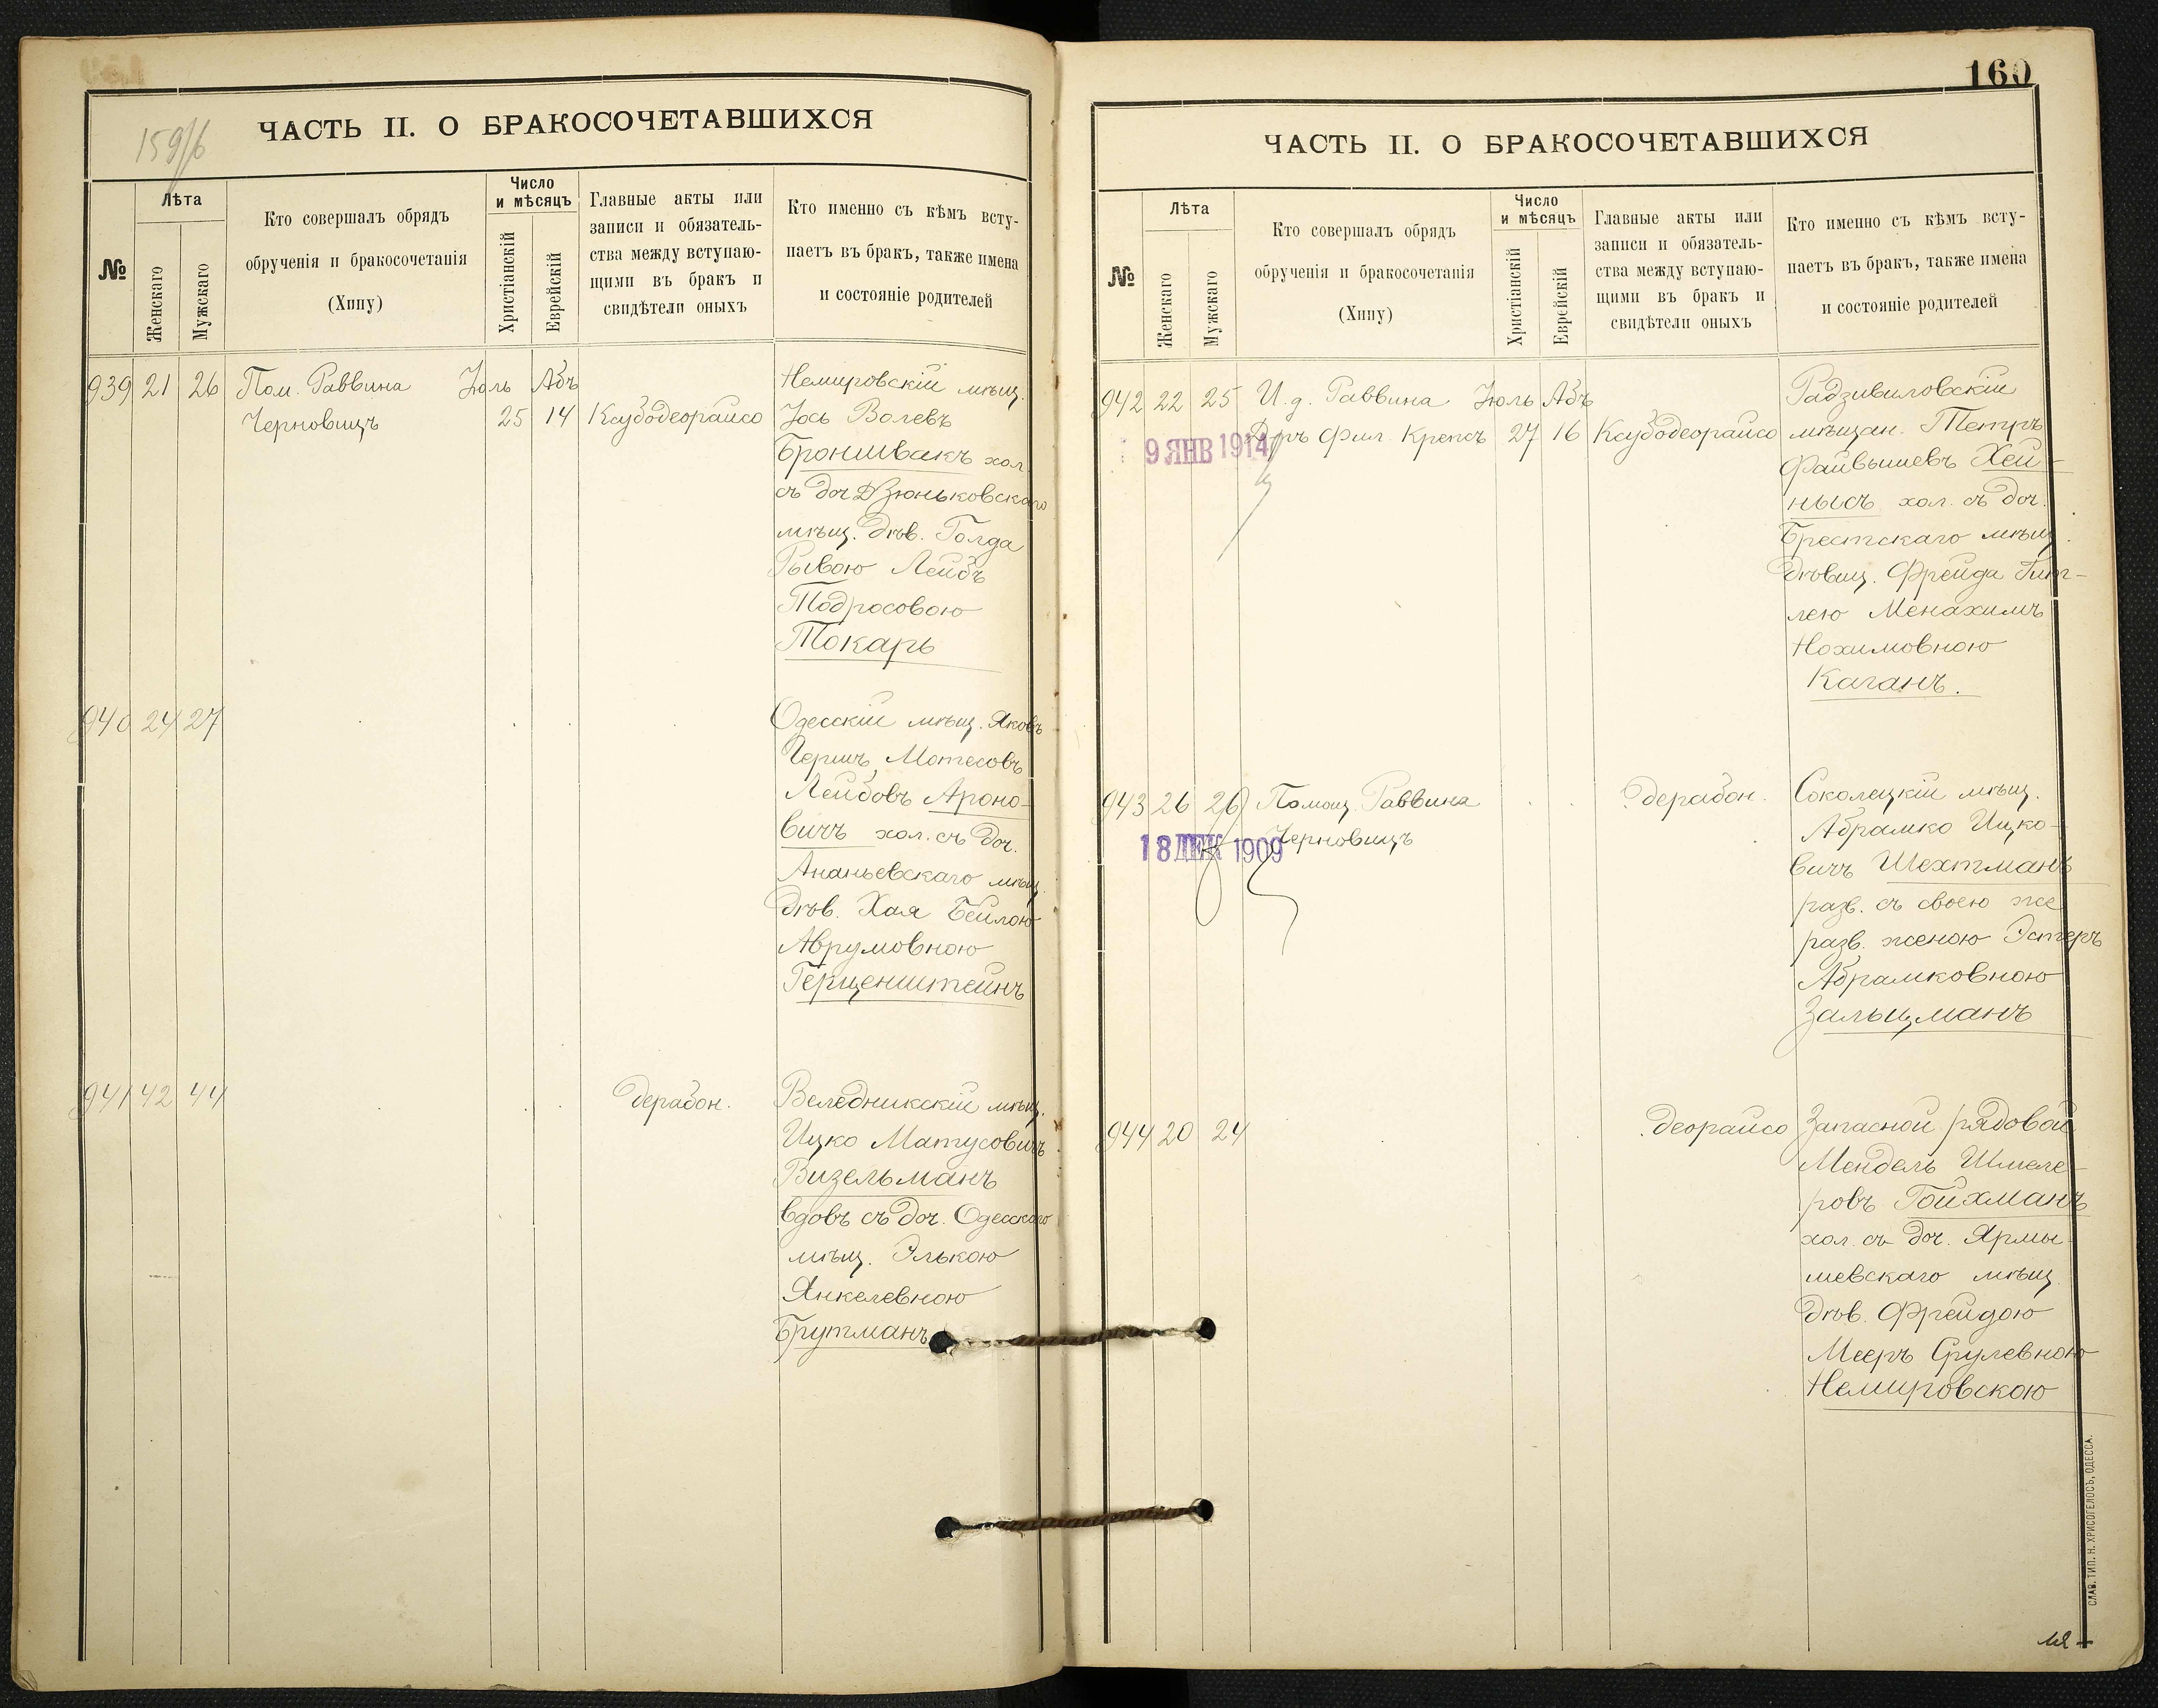 159/б
ЧАСТЬ II. О БРАКОСОЧЕТАВШИХСЯ
№
Лѣта
Женскаго
Мужскаго
Кто совершалъ обрядъ
обрученія и бракосочетанія
(Хипу)
Число
и мѣсяцъ
Христіанскій
Еврейскій
Главные акты или
записи и обязатель-
ства между вступаю-
щими въ бракъ и
свидѣтели оныхъ
Кто именно съ кѣмъ всту-
паетъ въ бракъ, также имена
и состояніе родителей
939 21 26 Пом. Раввина Іюль Абъ
Черновицъ 25 14 Ксубодеорайсо
Немировскій мѣщ.
Іось Волевъ
Броншвакъ хол.
съ доч. Дзюньковскаго
мѣщ. дѣв. Голда
Рывою Лейбъ
Тодросовою
Токарь
940 24 27
Одесскій мѣщ. Яковъ
Гершъ Мотесовъ
Лейбовъ Ароно-
вичъ хол. съ доч.
Ананьевскаго мѣщ.
дѣв. Хая Бейлою
Аврумовною
Герценштейнъ
941 42 44 дерабон.
Веледникскій мѣщ.
Ицко Матусовичъ
Визельманъ
вдовъ съ доч. Одесскаго
мѣщ. Элькою
Янкелевною
Брутманъ
160
ЧАСТЬ II. О БРАКОСОЧЕТАВШИХСЯ
№
Лѣта
Женскаго
Мужскаго
Кто совершалъ обрядъ
обрученія и бракосочетанія
(Хипу)
Число
и мѣсяцъ
Христіанскій
Еврейскій
Главные акты или
записи и обязатель-
ства между вступаю-
щими въ бракъ и
свидѣтели оныхъ
Кто именно съ кѣмъ всту-
паетъ въ бракъ, также имена
и состояніе родителей
942 22 25 И. д. Раввина Іюль Абъ
Д-ръ Фил. Крепсъ 27 16 Ксубодеорайсо
9 ЯНВ 1914
Радзивиловскій
мѣщан. Петръ
Файвышевъ Хей-
нысъ хол. съ доч.
Брестскаго мѣщ.
дѣвиц. Фрейда Гит-
лею Менахимъ
Нохимовною
Каганъ.
943 26 26 Помощ. Раввина
Черновицъ
дерабон.
18 ДЕК 1909
Соколецкій мѣщ.
Абрамко Ицко-
вичъ Шехтманъ
разв. съ своею же
разв. женою Эстеръ
Абрамковною
Зальцманъ
944 20 24 деорайсо
Запасной рядовой
Мендель Шмеле-
ровъ Гойхманъ
хол. съ доч. Ярмы-
шевскаго мѣщ.
дѣв. Фрейдою
Мееръ Срулевною
Немировскою
СЛАВ. ТИП. Н. ХРИСОГЕЛОСЪ, ОДЕССА.